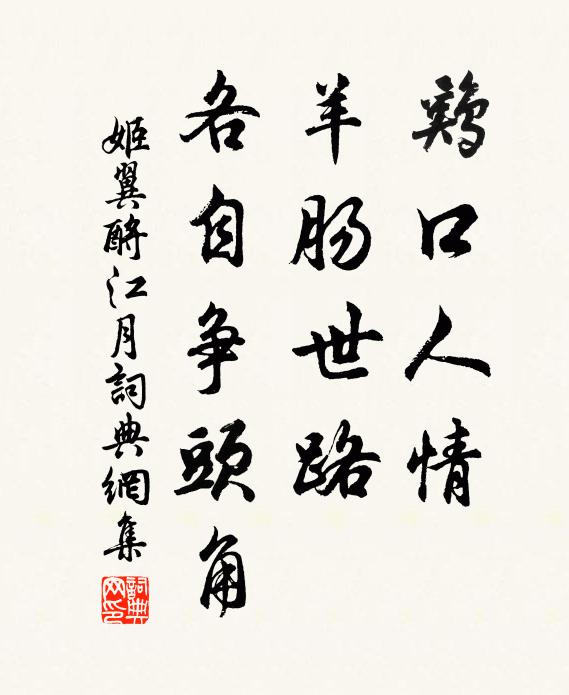 鷄口人情
羊腸世路
各自争頭角
姬翼酹江月詞典網集
詞典网印